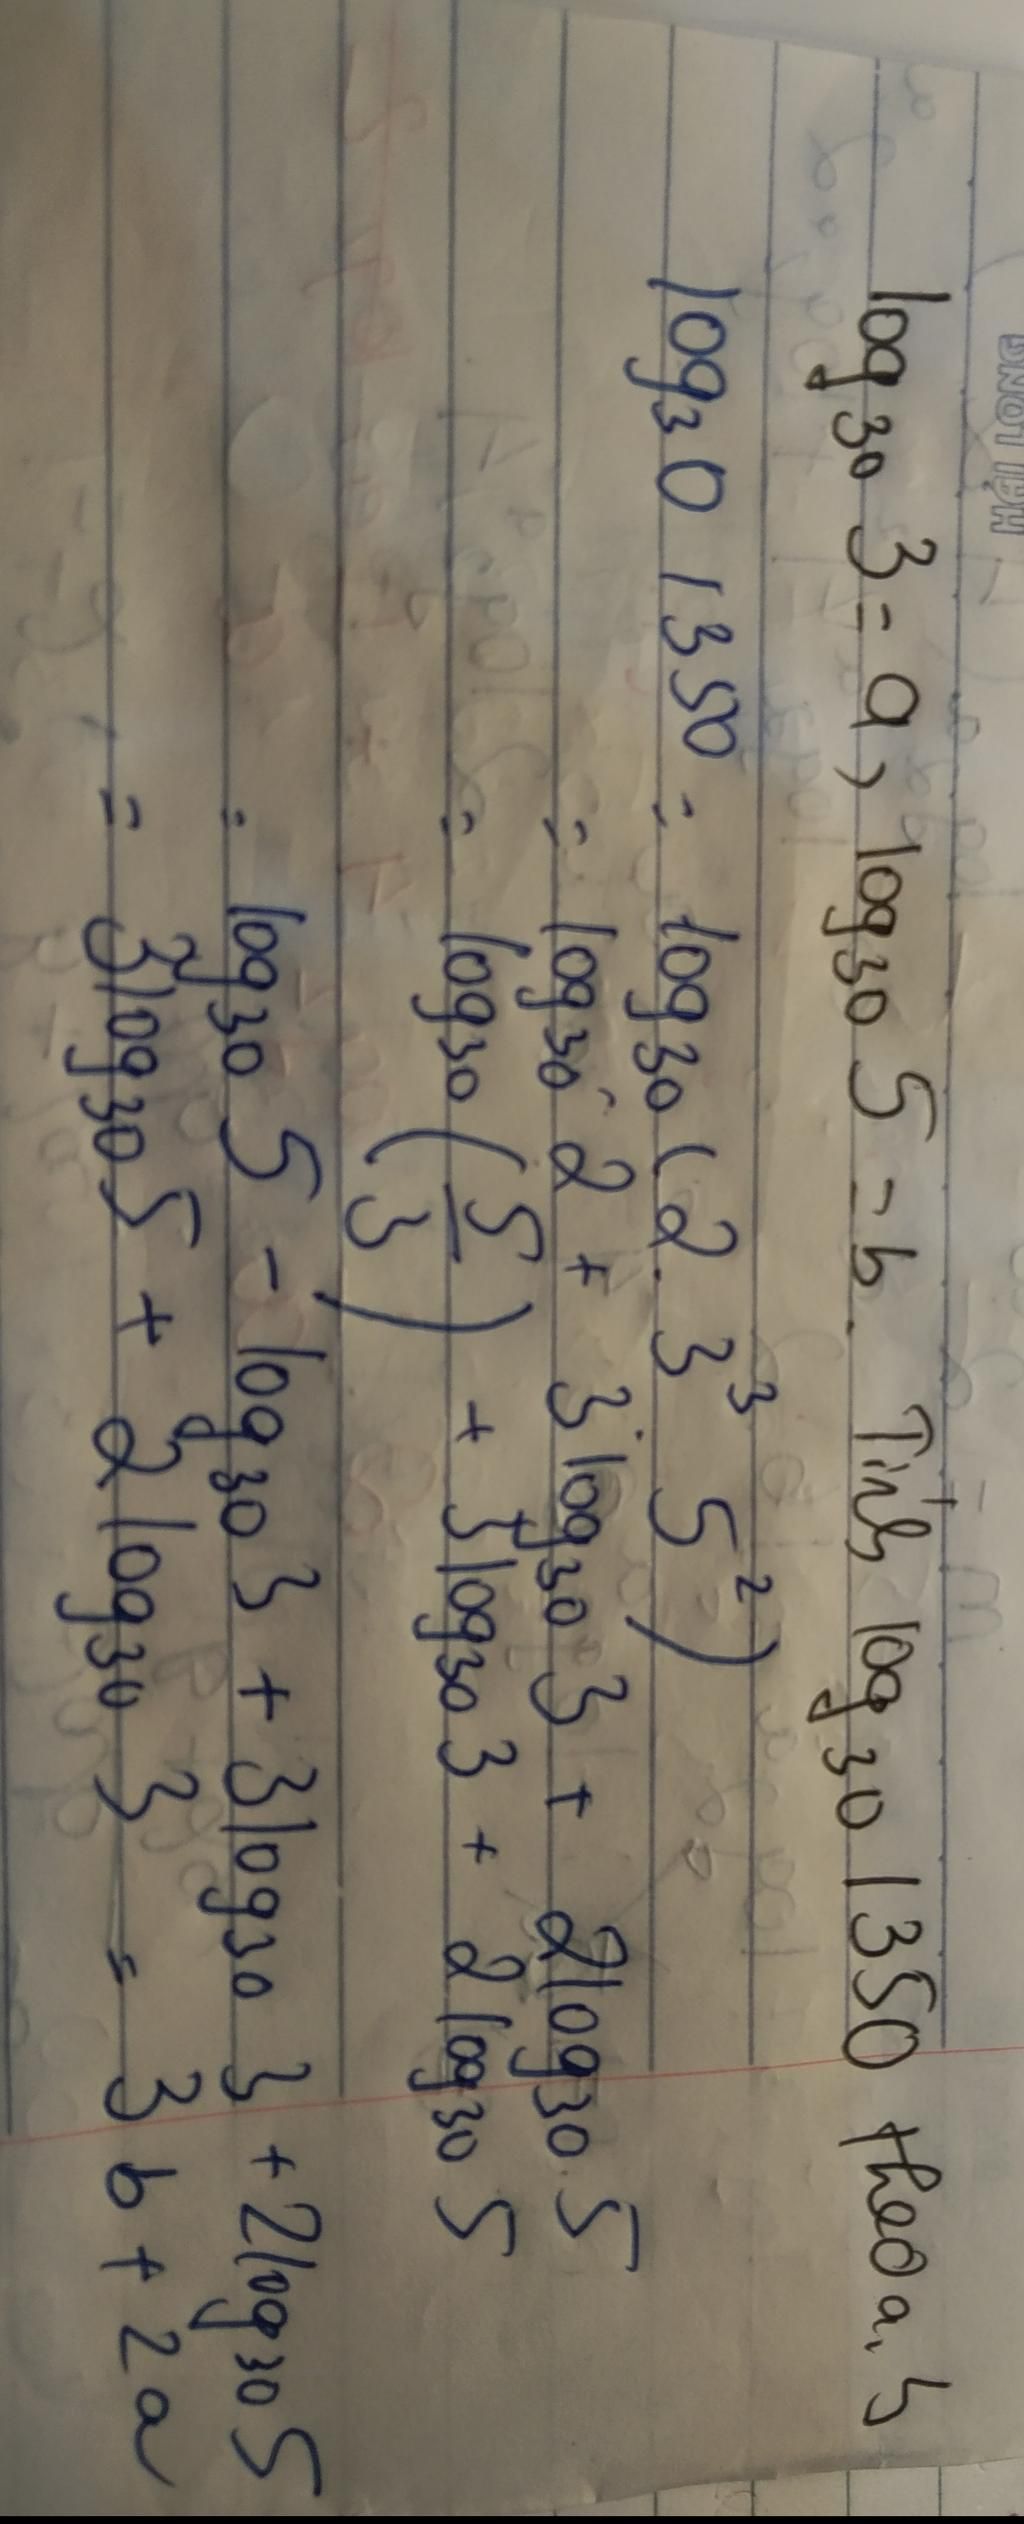 HẢI LONG
log₃₀ 3 = a, log₃₀ 5 = b. Tính log₃₀ 1350 theo a, b
log₃₀ 1350 = log₃₀ (2. 3³ 5²)
= log₃₀ 2 + 3 log₃₀ 3 + 2 log₃₀ 5
= log₃₀ (5/3) + 3 log₃₀ 3 + 2 log₃₀ 5
= log₃₀ 5 - log₃₀ 3 + 3 log₃₀ 3 + 2 log₃₀ 5
= 3 log₃₀ 5 + 2 log₃₀ 3 = 3b + 2a